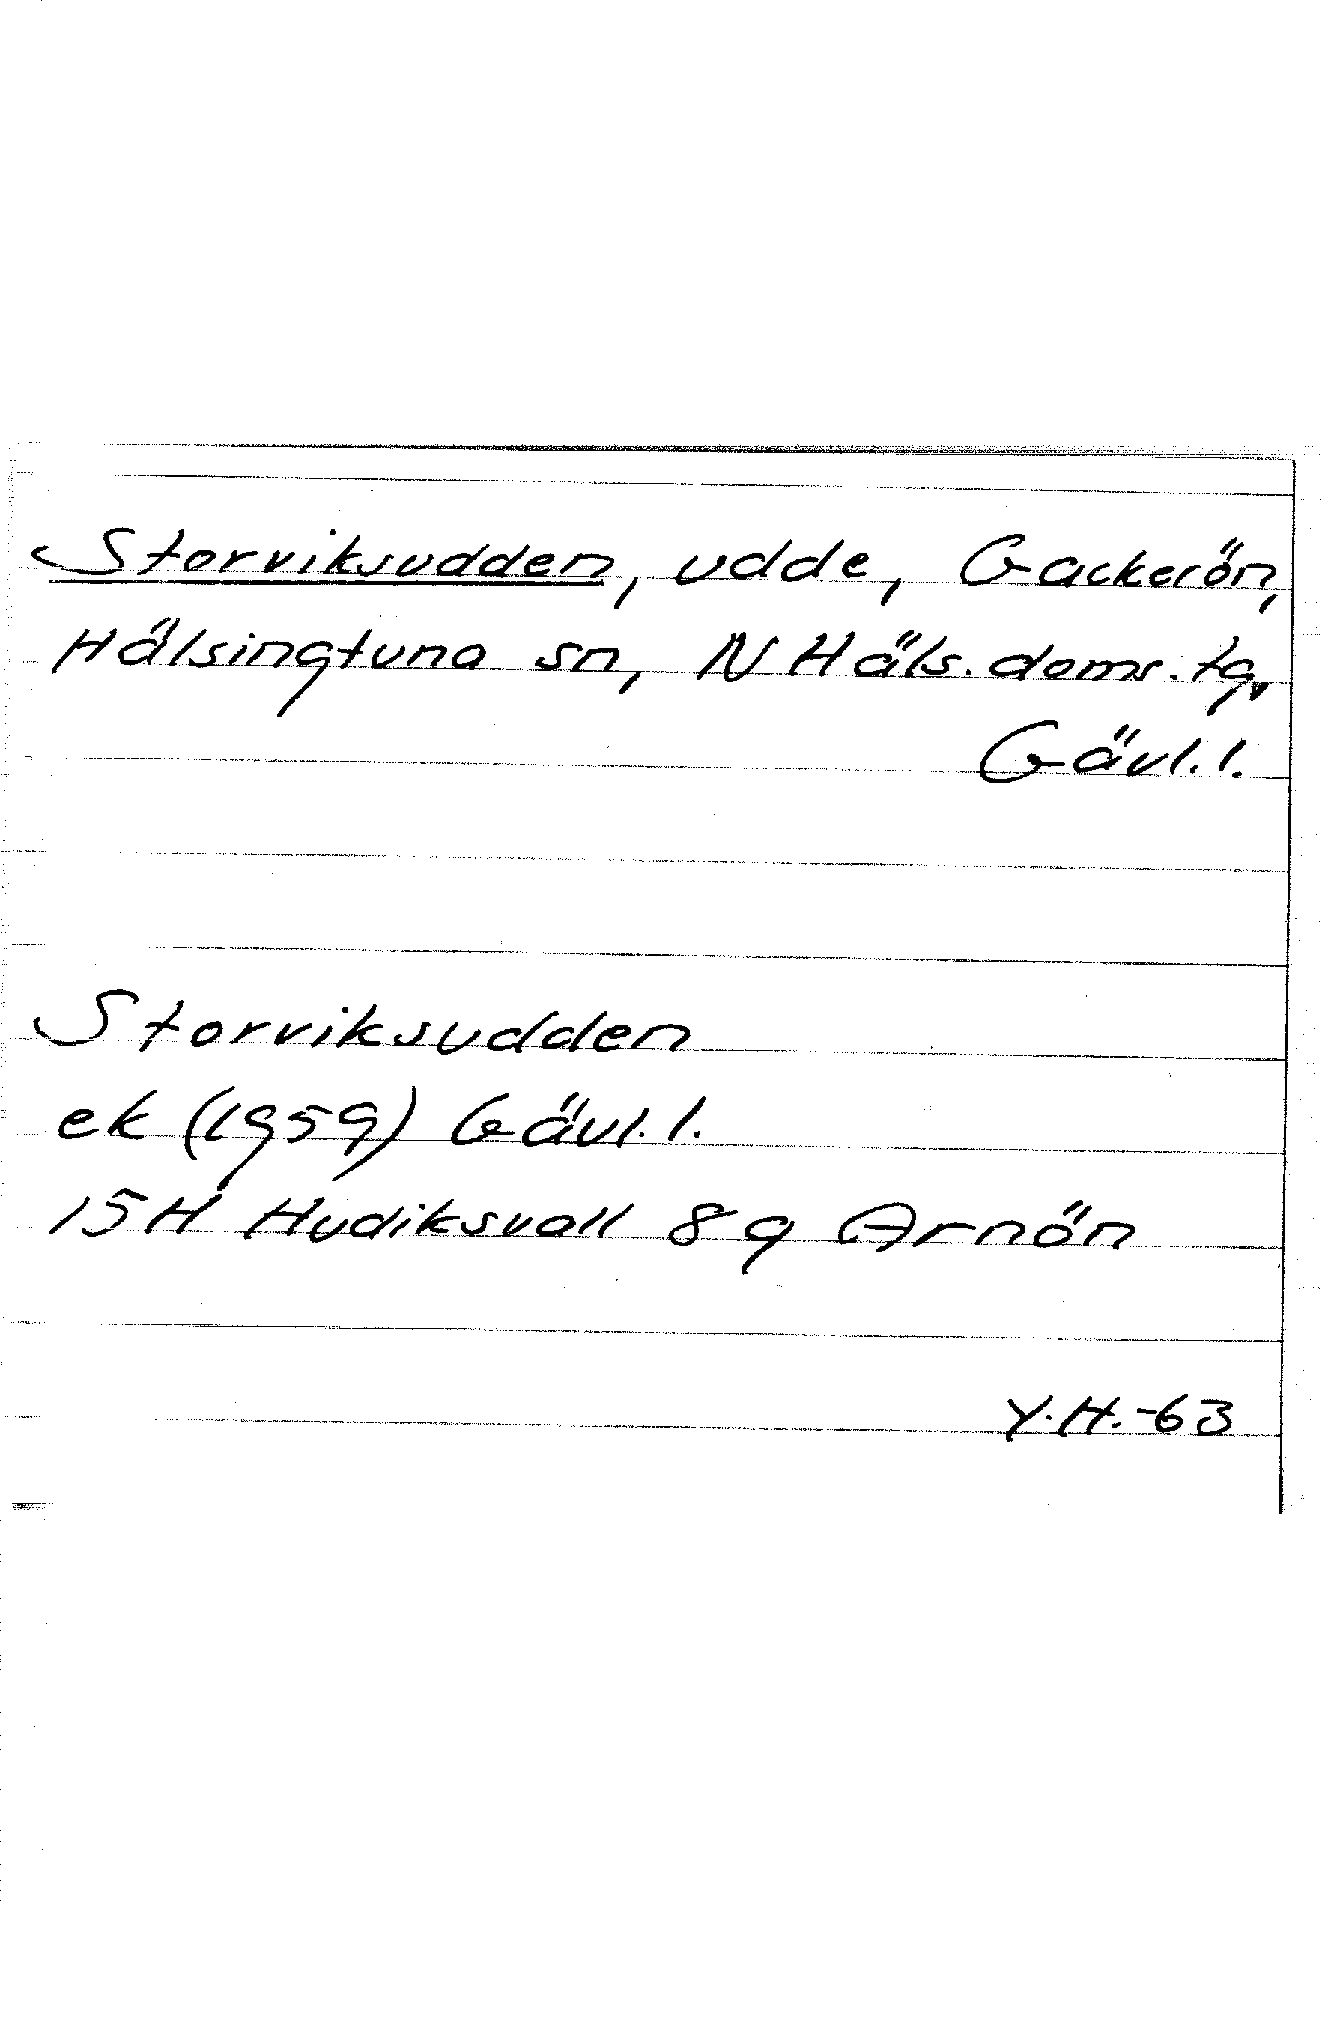 Storviksudden, udde, Gackerön,
Hälsingtuna sn, N Häls. doms. tg,
Gävl. l.
Storviksudden
ek (1959) Gävl. l.
15H Hudiksvall 8g Arnön
Y.H.-63